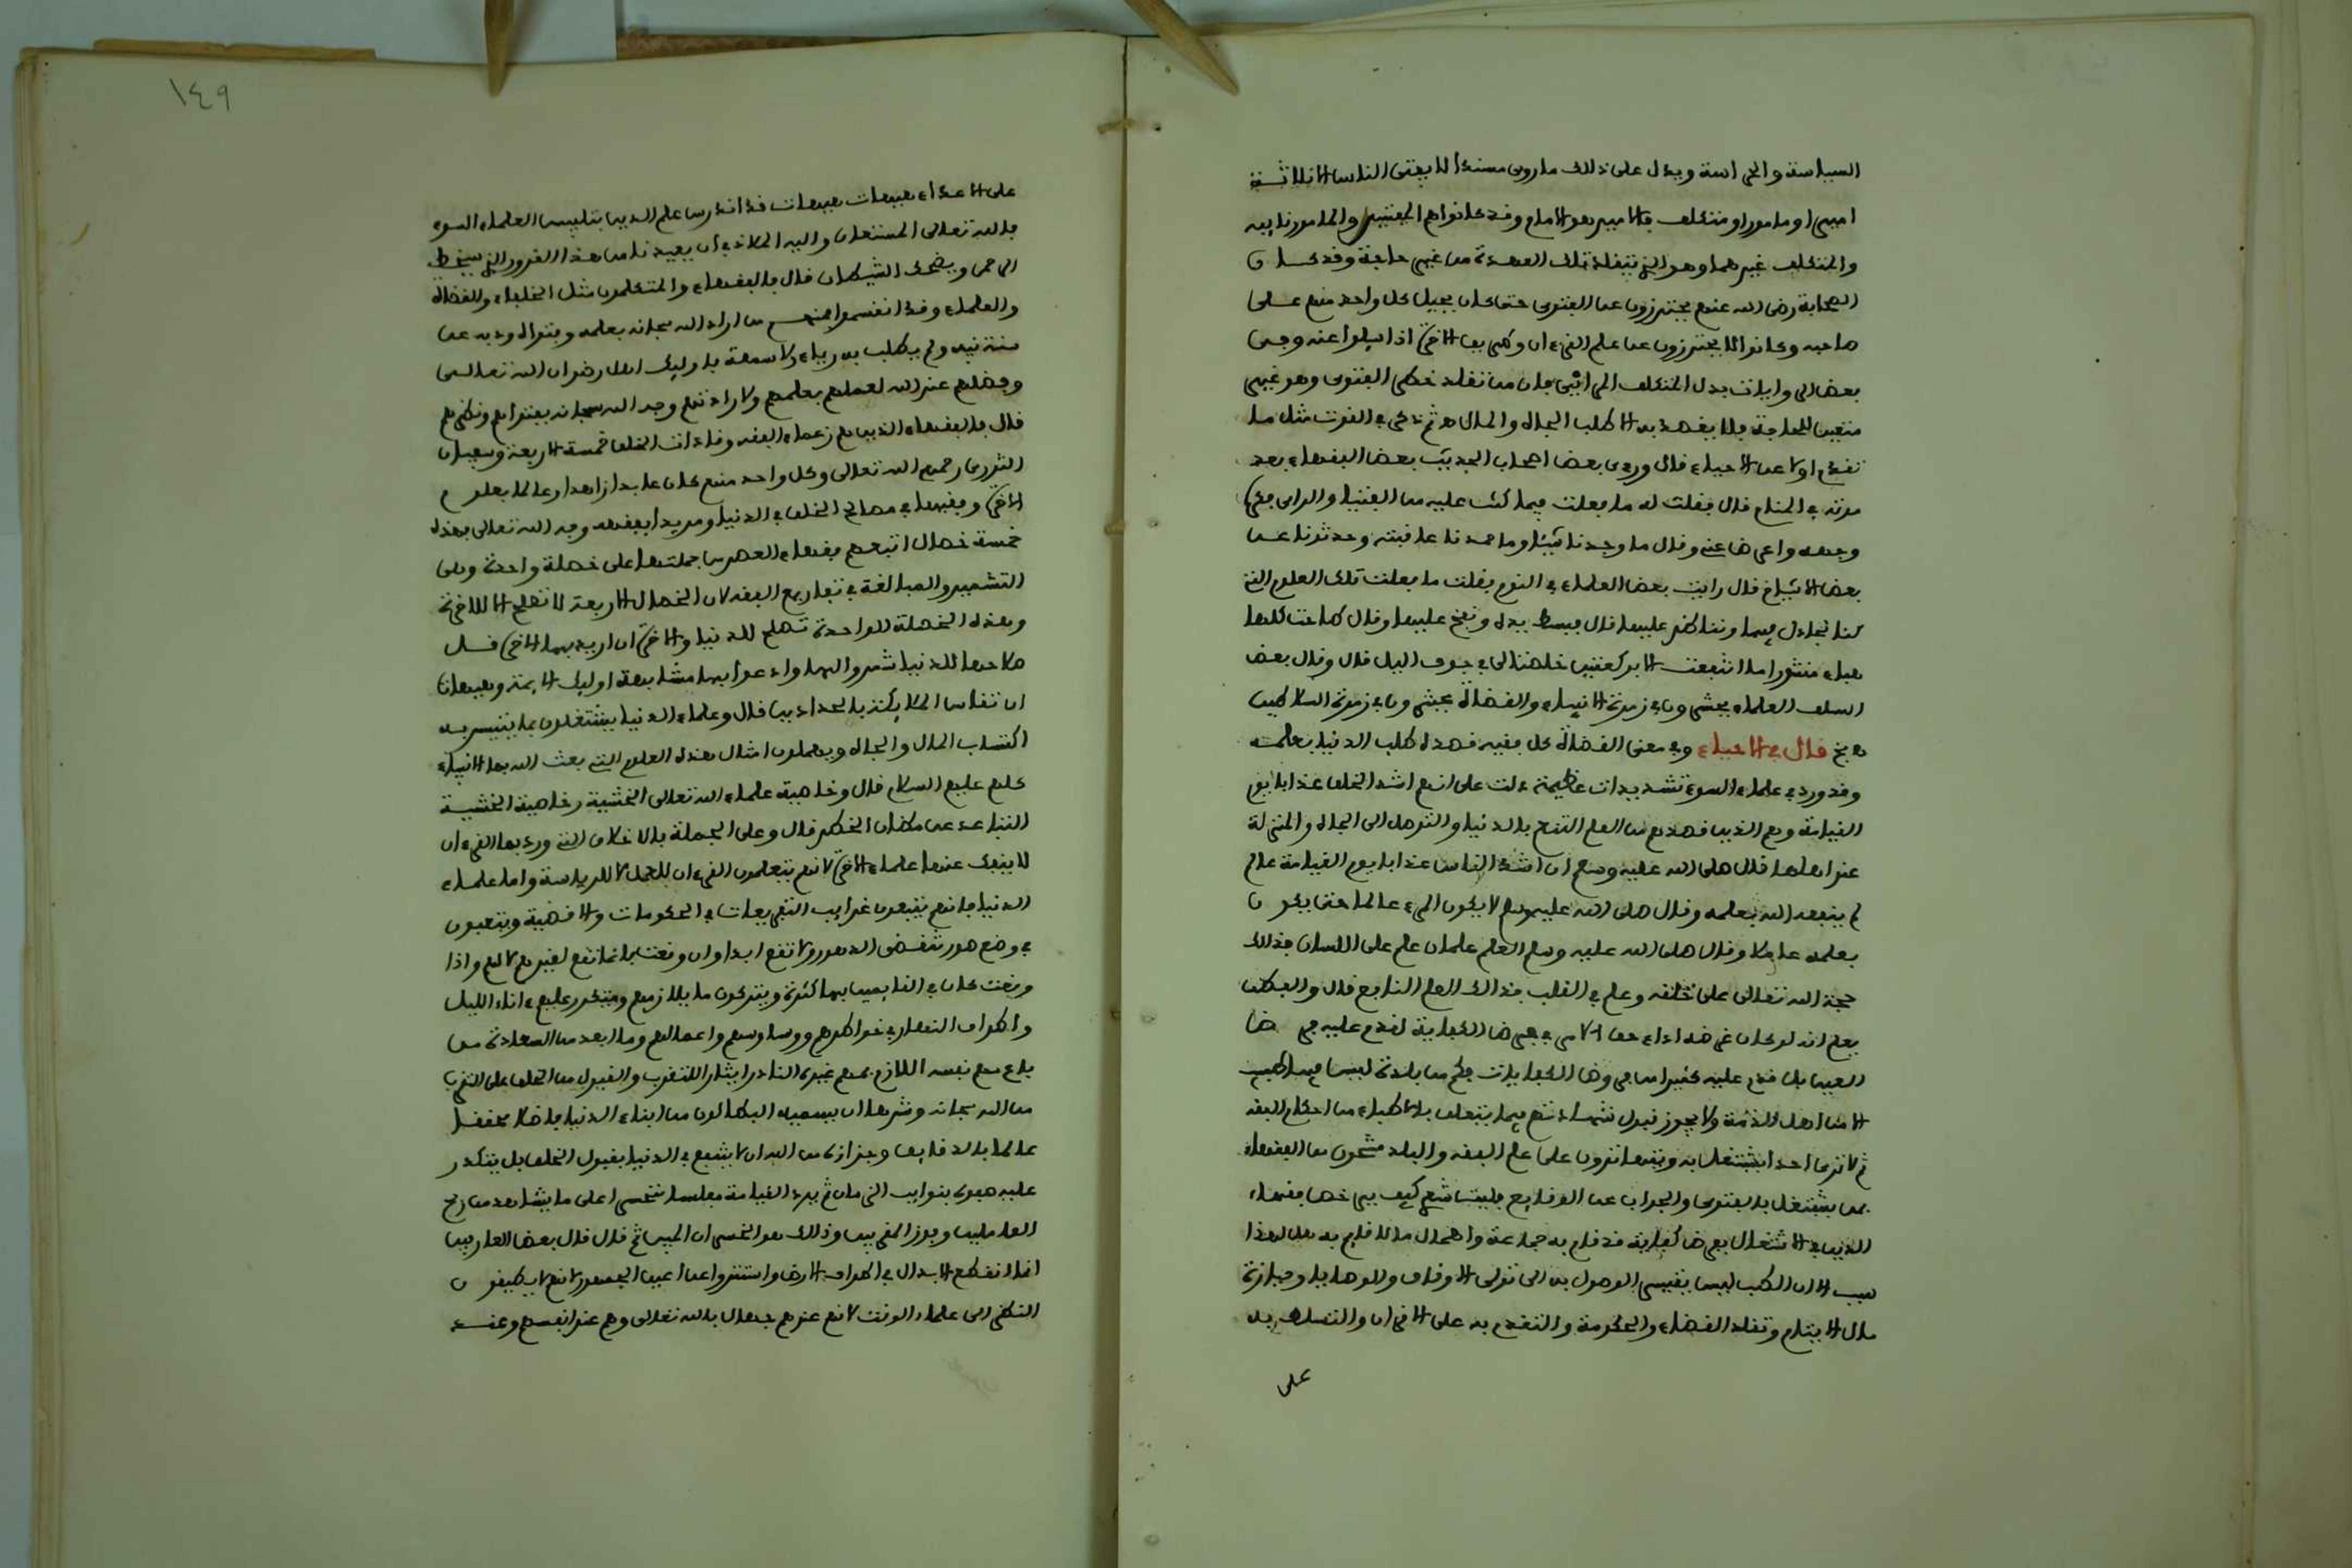 السياسة والحراسة ويدل على ذلك ما روي مسندا لا يفتي الناس الا ثلاثة
امير او مامور او متكلف فالامير هو الامام وقد كانوا هم المفتين والمامور نايبه
والمتكلف غيرهما وهو الذي يتقلد تلك العهدة من غير حاجة وقد كان
الصحابة رضي الله عنهم يحترزون عن الفتوى حتى كان يحيل كل واحد منهم على
صاحبه وكانوا لا يحترزون عن علم القرءان وطريق الاخرة اذا سيلوا عنه وفي
بعض الروايات بدل المتكلف المرائي فان من تقلد خطر الفتوى وهو غير
متعين للحاجة فلا يقصد به الا طلب الجاه والمال
تقدم اولا عن الاحياء قال وروى بعض اصحاب الحديث بعض الفقهاء بعد
موته في المنام قال فقلت له ما فعلت فيما كنت عليه من الفتيا والراي فكره
وجهه واعرض عني وقال ما وجدناه شيئا وما حمدنا عاقبته وحدثونا عن
بعض الاشياخ قال رايت بعض العلماء في النوم فقلت ما فعلت تلك العلوم التي
كنا نجادل فيها ونناظر عليها قال فبسط يده ونفخ عليها وقال طاحت كلها
هباء منثورا ما انتفعت الا بركعتين خلصتا لي في جوف الليل قال وقال بعض
السلف العلماء يحشرون في زمرة الانبياء والقضاة يحشرون في زمرة السلاطين
قال في الاحياء وفي معنى القضاة كل فقيه قصده طلب الدنيا بعلمه
وقد ورد في علماء السوء تشديدات عظيمة دلت على انهم اشد الخلق عذابا يوم
القيامة وهم الذين قصدهم من العلم التنعم بالدنيا والتوصل الى الجاه والمنزلة
عند اهلها قال صلى الله عليه وسلم ان اشد الناس عذابا يوم القيامة عالم
لم ينفعه الله بعلمه وقال صلى الله عليه وسلم لا يكون المرء عالما حتى يكون
بعلمه عاملا وقال صلى الله عليه وسلم العلم علمان علم على اللسان فذلك
حجة الله تعالى على خلقه وعلم في القلب فذلك العلم النافع قال والفطن
يعلم انه لو كان غرضه اداء حق الامر في فرض الكفاية لقدم عليه فرض
العين بل قدم عليه كثيرا من فروض الكفايات فكم من بلدة ليس فيها طبيب
الا من اهل الذمة ولا يجوز قبول شهادتهم فيما يتعلق بالاطباء من احكام الفقه
ثم لا نرى احدا يشتغل به ويتهاترون على علم الفقه والبلد مشحون من الفقهاء
بمن يشتغل بالفتوى والجواب عن الوقايع فليت شعري كيف يرخص فقهاء
الدين في الاشتغال بفرض كفاية قد قام به جماعة واهمال ما لا قايم به هل لهذا
سبب الا ان الطب ليس يتيسر الوصول به الى تولي الاوقاف والوصايا وحيازة
مال الايتام وتقلد القضاء والحكومة والتقدم به على الاقران والتسلط به
على
١٤٩
على الاعداء هيهات هيهات قد اندرس علم الدين بتلبيس العلماء السوء
فالله تعالى المستعان واليه الملاذ في ان يعيذنا من هذا الغرور الذي يسخط
الرحمن ويضحك الشيطان قال فالفقهاء والمتكلمون مثل الخلفاء والقضاة
والعلماء وقد انقسموا فمنهم من اراد الله سبحانه بعلمه وفتواه وذبه عن
سنة نبيه ولم يطلب به رياء ولا سمعة فاوليك اهل رضوان الله تعالى
وفضلهم عند الله لعملهم بعلمهم ولارادتهم وجه الله سبحانه بفتواهم ونظرهم
قال فالفقهاء الذين هم زعماء الفقه وقادات الخلق خمسة الاربعة وسفيان
الثوري رحمهم الله تعالى وكل واحد منهم كان عابدا زاهدا وعالما بعلوم
الاخرة وفقيها في مصالح الخلق في الدنيا ومريدا بفقهه وجه الله تعالى فهذه
خمسة خصال اتبعهم فقهاء العصر من جملتها على خصلة واحدة وهي
التشمير والمبالغة في تفاريع الفقه لان الخصال الاربعة لا تصلح الا للاخرة
وهذه الخصلة الواحدة تصلح للدنيا والاخرة ان اريد بها الاخرة قل
صلاحها للدنيا شمروا لها وادعوا بها مشابهة اوليك الايمة وهيهات
ان تقاس الملايكة بالحدادين قال وعلماء الدنيا يشتغلون بما يتيسر به
اكتساب المال والجاه ويهملون امثال هذه العلوم التي بعث الله بها الانبياء
كلهم عليهم السلام قال وخاصية علماء الله تعالى الخشية وخاصية الخشية
التباعد عن مظان الخطر قال وعلى الجملة فالاخلاق التي ورد بها القرءان
لا ينفك عنها علماء الاخرة لانهم يتعلمون القرءان للعمل لا للرياسة واما علماء
الدنيا فانهم يتبعون غرايب التفريعات في الحكومات والاقضية ويتعبون
في وضع صور تنقضي الدهور ولا تقع ابدا وان وقعت فانما تقع لغيرهم لا لهم واذا
وقعت كان في القايمين بها كثرة ويتركون ما يلازمهم ويتكرر عليهم ءاناء الليل
واطراف النهار في خواطرهم ووساوسهم واعمالهم وما ابعد من السعادة من
باع مهم نفسه اللازم بمهم غيره النادر ايثارا للتقرب والقبول من الخلق على التقرب
من الله سبحانه وشرها ان يسميه البطالون من ابناء الدنيا فاضلا محققا
عالما بالدقايق وجزاؤه من الله ان لا ينتفع في الدنيا بقبول الخلق بل يتكدر
عليه صفوه بنوايب الزمان ثم يرد القيامة مفلسا متحسرا على ما يشاهد من ربح
العاملين وفوز المقربين وذلك هو الخسران المبين ثم قال قال بعض العارفين
انما انقطع الابدال في اطراف الارض واستتروا عن اعين الجمهور لانهم لا يطيقون
النظر الى علماء الوقت لانهم عندهم جهال بالله تعالى وهم عند انفسهم وعند